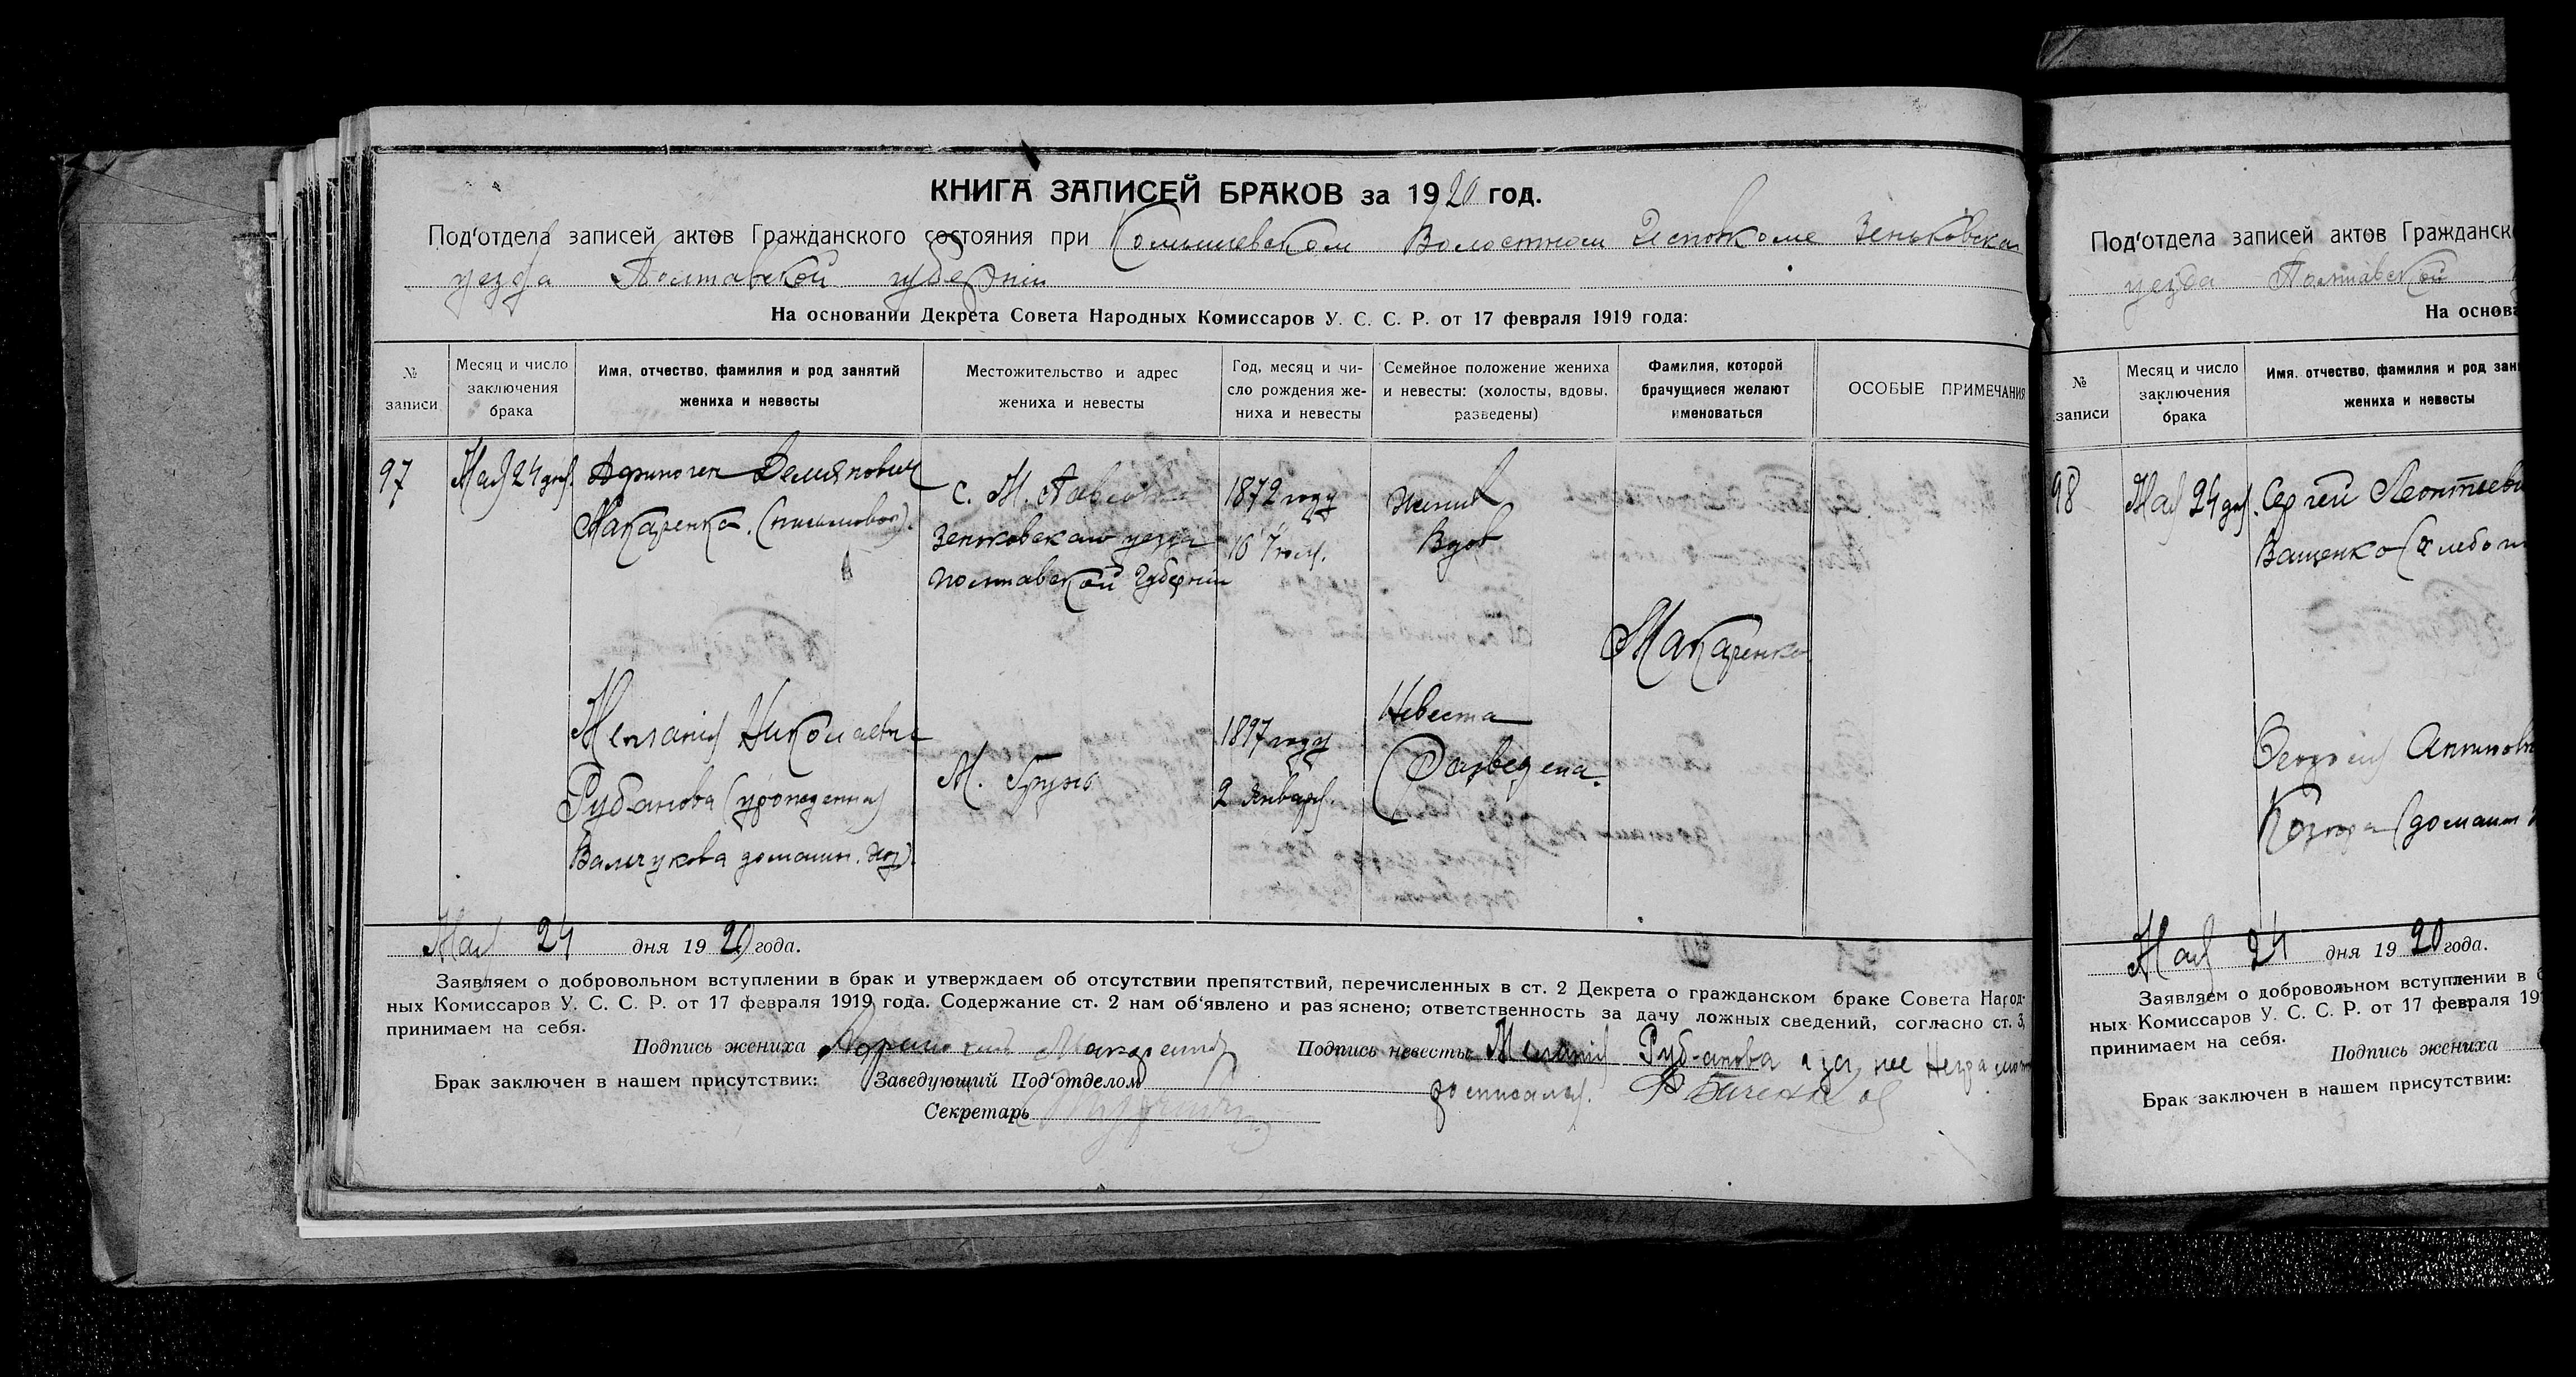 КНИГА ЗАПИСЕЙ БРАКОВ за 1920 год.
Под'отдела записей актов Гражданского состояния при Комышевском Волостном Исповкоме Зеньковска
уезда Полтавской губернии
На основании Декрета Совета Народных Комиссаров У. С. С. Р. от 17 февраля 1919 года:
№ записи
Месяц и число заключения брака
Имя, отчество, фамилия и род занятий жениха и невесты
Местожительство и адрес жениха и невесты
Год, месяц и чи-
сло рождения же-
ниха и невесты
Семейное положение жениха и невесты: (холосты, вдовы, разведены)
Фамилия, которой брачущиеся желают именоваться
ОСОБЫЕ ПРИМЕЧАНИЯ
97
Мая 24 дня.
Афиноген Демянович
Макаренко.
с. М. Павловка
Зеньковскаго уезда
Полтавской Губернии
1872 году
16 Июля.
Жених
Вдов
Макаренко
Мелания Николаевна
Рубанова (урожденная
домашн. хоз).
М. Грунь
1897 году
2 Января.
Невеста
Разведена.
Мая 24 дня 1920 года.
Заявляем о добровольном вступлении в брак и утверждаем об отсутствии препятствий, перечисленных в ст. 2 Декрета о гражданском браке Совета Народ-
ных Комиссаров У. С. С. Р. от 17 февраля 1919 года. Содержание ст. 2 нам об'явлено и раз яснено; ответственность за дачу ложных сведений, согласно ст. 3,
принимаем на себя.
Подпись жениха Макаренко
Подпись невесты Мелания Рубанова а за нее неграмот
росписался.
Брак заключен в нашем присутствии: Заведующий Под'отделом
Секретарь
Под'отдела записей актов Гражданск
уезда Полтавской
На основа
№ записи
Месяц и число заключения брака
Имя. отчество, фамилия и род зан
жениха и невесты
98
Мая 24 дня.
Сергей Леонтеви
Ващенко (хлебоп
(домашн
Мая 24 дня 1920 года.
Заявляем о добровольном вступлении в б
ных Комиссаров У. С. С. Р. от 17 февраля 19
принимаем на себя.
Подпись жениха
Брак заключен в нашем присутствии: